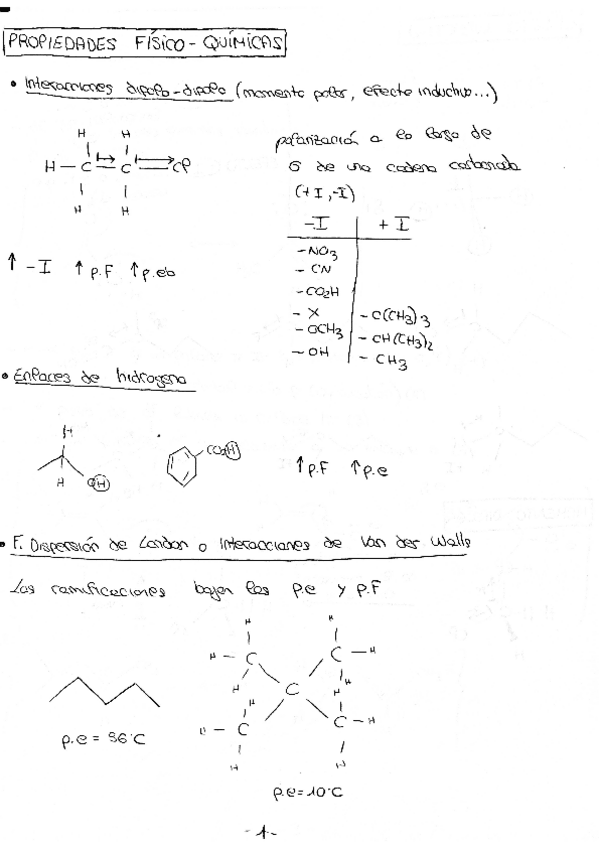 PROPIEDADES FÍSICO - QUÍMICAS
• Interacciones dipolo-dipolo (momento polar, efecto inductivo...)
H H
H - C C Cl
H H
polarización a lo largo de
σ de una cadena carbonada
(+I, -I)
-I + I
-NO3
- CN
-CO2H
- X - C(CH3)3
- OCH3 - CH(CH3)2
- OH - CH3
↑ -I ↑ p.F ↑ p.eb
• Enlaces de hidrogeno
H
H OH
CO2H
↑ p.F ↑ p.e
• F. Dispersión de London o interacciones de Van der Walls
Las ramificaciones bajan los p.e y p.F
H H
H - C C - H
H H
H C H
C - C - H
H H
p.e = 36°C
p.e = 10°C
- 1 -